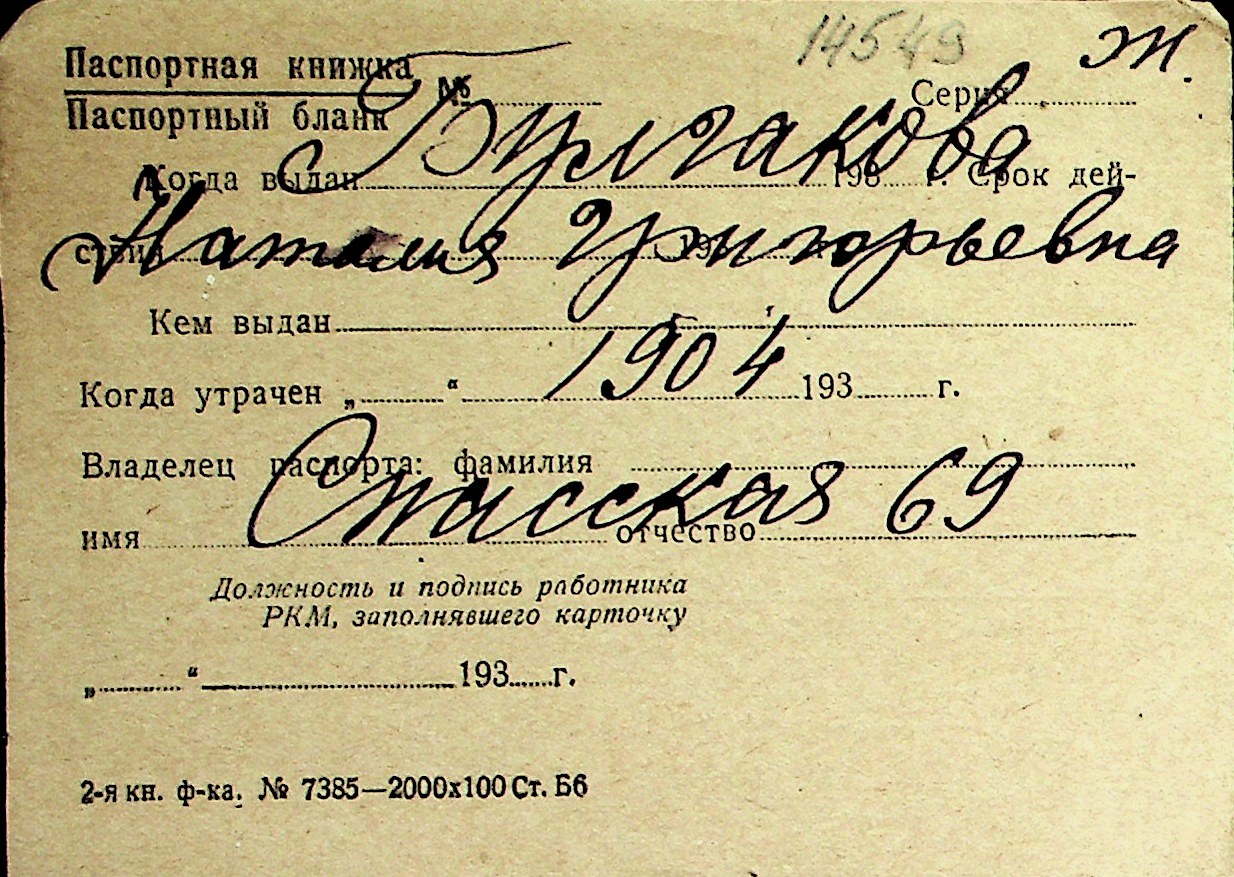 14549 Ж.
Паспортная книжка
Паспортный бланк № Серия
Булгакова
Когда выдан 193 г. Срок дей-
Наталия Григорьевна
ствия 193
Кем выдан
1904
Когда утрачен „ “ 193 г.
Владелец паспорта: фамилия
Спасская 69
имя отчество
Должность и подпись работника
РКМ, заполнявшего карточку
„ “ 193 г.
2-я кн. ф-ка. № 7385—2000х100 Ст. Б6